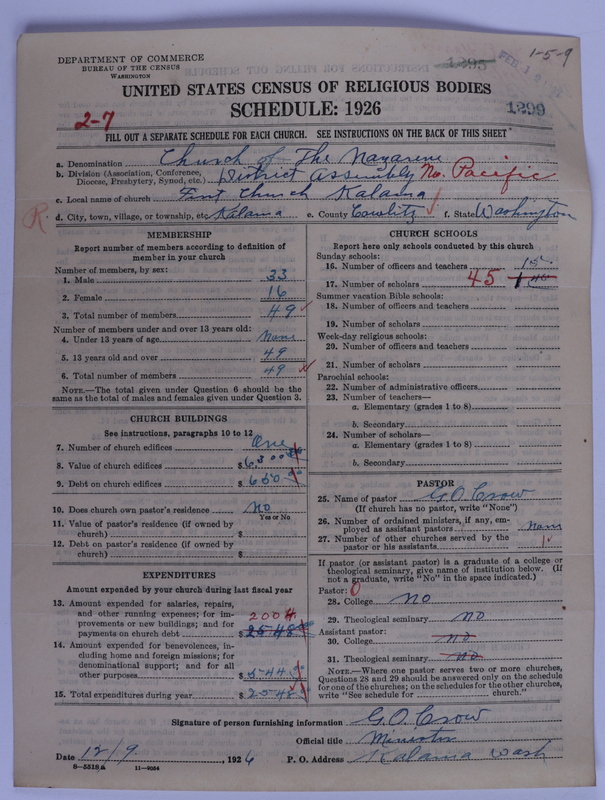 1-5-9
DEPARTMENT OF COMMERCE
BUREAU OF THE CENSUS
WASHINGTON
1295
FEB 19
UNITED STATES CENSUS OF RELIGIOUS BODIES
SCHEDULE: 1926
1299
2-7
FILL OUT A SEPARATE SCHEDULE FOR EACH CHURCH. SEE INSTRUCTIONS ON THE BACK OF THIS SHEET
a. Denomination Church of The Nazarene
b. Division (Association, Conference, Diocese, Presbytery, Synod, etc.) District Assembly No. Pacific
c. Local name of church First Church Kalama
R. d. City, town, village, or township, etc Kalama e. County Cowlitz f. State Washington
MEMBERSHIP
Report number of members according to definition of member in your church
Number of members, by sex:
1. Male 33
2. Female 16
3. Total number of members 49
Number of members under and over 13 years old:
4. Under 13 years of age none
5. 13 years old and over 49
6. Total number of members 49
NOTE.—The total given under Question 6 should be the same as the total of males and females given under Question 3.
CHURCH BUILDINGS
See instructions, paragraphs 10 to 12
7. Number of church edifices One
8. Value of church edifices $6300
9. Debt on church edifices $650
10. Does church own pastor's residence No
Yes or No
11. Value of pastor's residence (if owned by church) $
12. Debt on pastor's residence (if owned by church) $
EXPENDITURES
Amount expended by your church during last fiscal year
13. Amount expended for salaries, repairs, and other running expenses; for improvements or new buildings; and for payments on church debt 2004 $2548
14. Amount expended for benevolences, including home and foreign missions; for denominational support; and for all other purposes $544
15. Total expenditures during year $2548
CHURCH SCHOOLS
Report here only schools conducted by this church
Sunday schools:
16. Number of officers and teachers
17. Number of scholars 45
Summer vacation Bible schools:
18. Number of officers and teachers
19. Number of scholars
Week-day religious schools:
20. Number of officers and teachers
21. Number of scholars
Parochial schools:
22. Number of administrative officers
23. Number of teachers—
a. Elementary (grades 1 to 8)
b. Secondary
24. Number of scholars—
a. Elementary (grades 1 to 8)
b. Secondary
PASTOR
25. Name of pastor G.O. Crow
(If church has no pastor, write "None")
26. Number of ordained ministers, if any, employed as assistant pastors none
27. Number of other churches served by the pastor or his assistants 1
If pastor (or assistant pastor) is a graduate of a college or theological seminary, give name of institution below. (If not a graduate, write "No" in the space indicated.)
Pastor: 0
28. College no
29. Theological seminary no
Assistant pastor:
30. College no
31. Theological seminary no
NOTE.—Where one pastor serves two or more churches, Questions 28 and 29 should be answered only on the schedule for one of the churches; on the schedules for the other churches, write "See schedule for ________ church."
Signature of person furnishing information G.O. Crow
Official title Minister
Date 12/9, 1926 P. O. Address Kalama Wash
8-5318a 11-9054